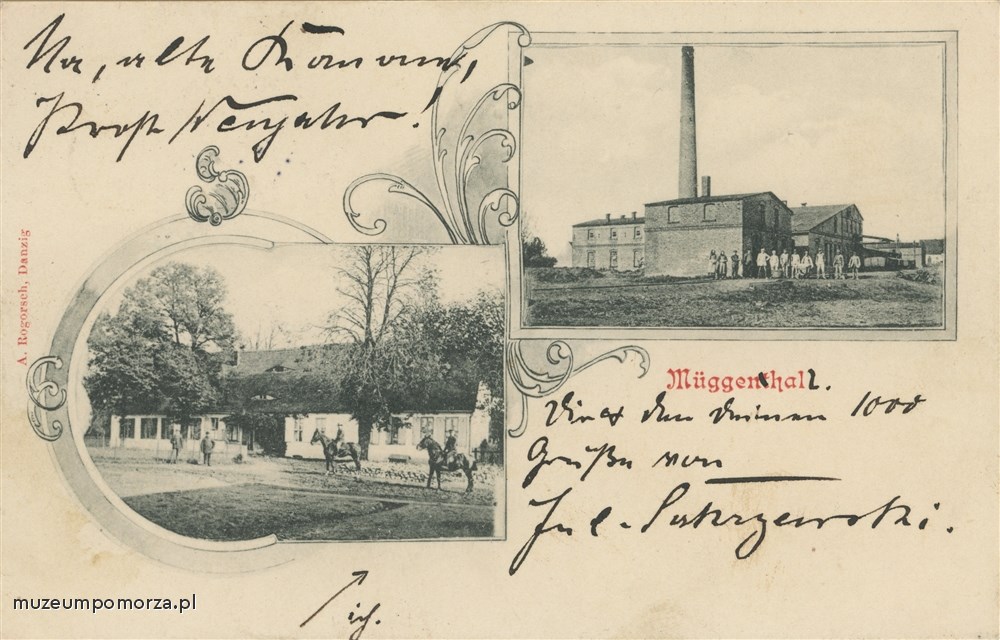 Na, alte
Prost Neujahr!
A. Rogorsch, Danzig
Müggenthal
den deinen 1000
Grüße von
Jul. Sakrzewski.
ich.
muzeumpomorza.pl